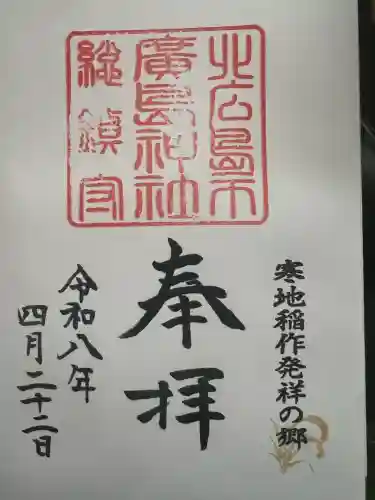 北広島市
廣島神社
総鎮守
寒地稲作発祥の郷
奉拝
令和八年
四月二十二日